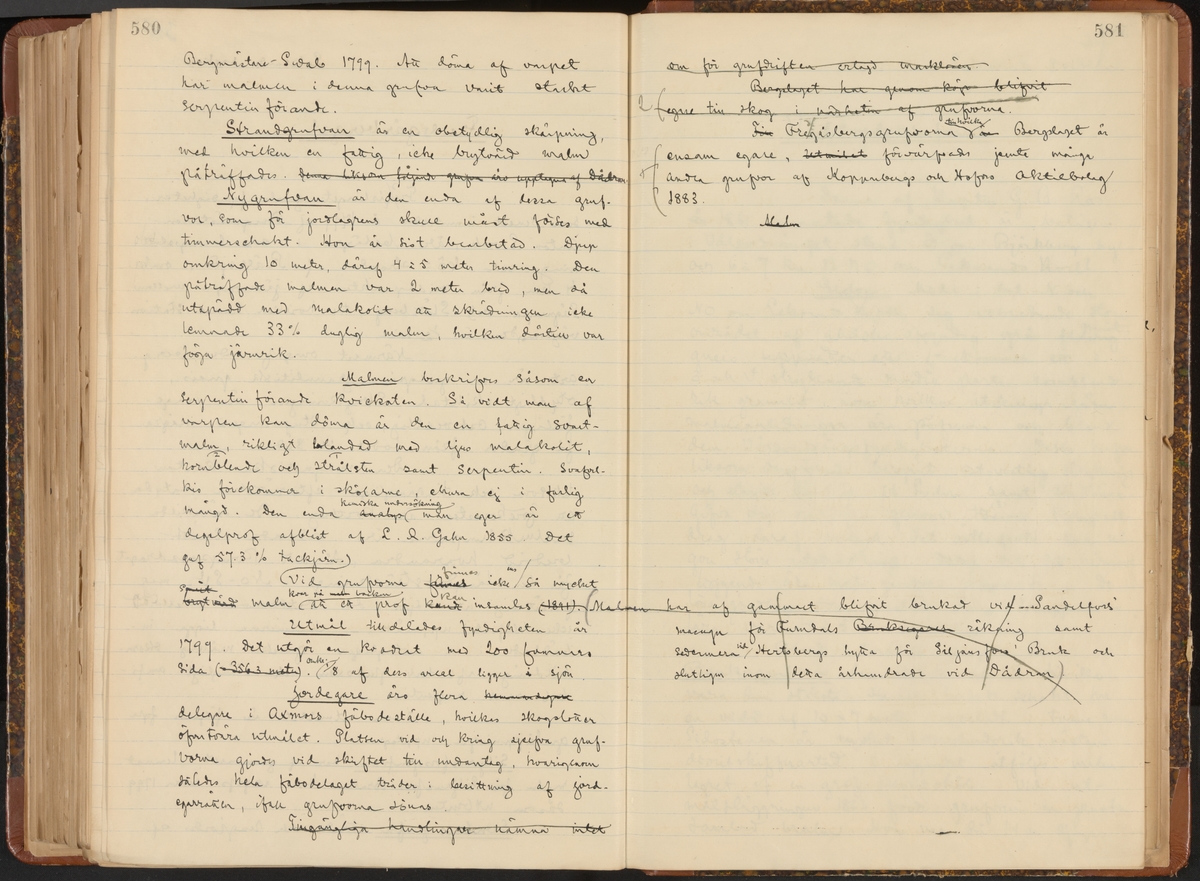 580
Bergmästare Sidalo 1799. Att döma af varpet
har malmen i denna grufva varit starkt
serpentinförande.
Strandgrufvan är en obetydlig skärpning,
med hvilken en fattig, icke brytvärd malm
påträffades. denna liksom följande grufva äro upptagna af Dådran
Nygrufvan är den enda af dessa gruf-
vor, som för jordlagrens skull måst förses med
timmerschakt. Hon är sist bearbetad. Djup
omkring 10 meter, däraf 4 à 5 meter timring. Den
påträffade malmen var 2 meter bred, men så
utspädd med malakolit att skrädningen icke
lemnade 33% duglig malm, hvilken därtill var
föga järnrik.
Malmen beskrifves såsom en
serpentinförande kvicksten. Så vidt man af
varpen kan döma är den en fattig svart-
malm, rikligt blandad med ljus malakolit,
hornblende och strålsten samt serpentin. Svafvel-
kis förekommer i skölarne, ehuru ej i farlig
mängd. Den enda analys kemiska undersökning man eger är ett
degelprof afblåst af L. Q. Gahn 1855 Det
gaf 57.3 % tackjern.)
Vid grufvorna finnes finnes icke nu så mycket
malm att ett prof kunde kan insamlas (1891)
Utmål tilldelades fyndigheten år
1799. Det utgör en kvadrat med 200 famnars
sida (= 356.3 meter). 1/8 af dess areal ligger i sjön.
Jordegare äro flera hemmansegare
delegare i Axmors fäbodeställe, hvilkas skogslotter
öfvertvära utmålet. Platsen vid och kring sjelfva gruf-
vorna gjordes vid skiftet till undantag, hvarigenom
således hela fäbodelaget träder i besittning af jord-
egarrätten, ifall grufvorna sönas
Tillgängliga handlingar nämna intet
581
om för grufdriften erlagd marklösen
Bergslaget har genom köp blifvit
2 (egare till skog i närheten af grufvorna.
Till Fredsbergsgrufvorna till hvilka är Bergslaget är
ensam egare, förvärfvades jemte många
andra grufvor af Kopparbergs och Hofors Aktiebolag
1883.
Malm
(Malmen har af gammalt blifvit brukad vid Sandelfors
masugn för Furudals Bruksegares räkning samt
sedermera vid Hertsbergs hytta för Siljansfors Bruk och
slutligen inom detta århundrade vid Dådran)